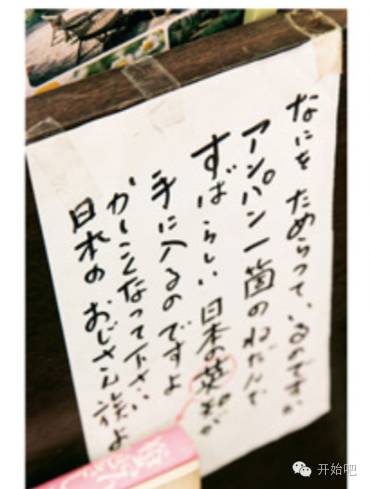 なにをためらっているのですか
アンパン一箇のねだんで
すばらしい日本の英知が
手に入るのですよ
かしこくなって下さい
日本のおじさん族よ
开始吧